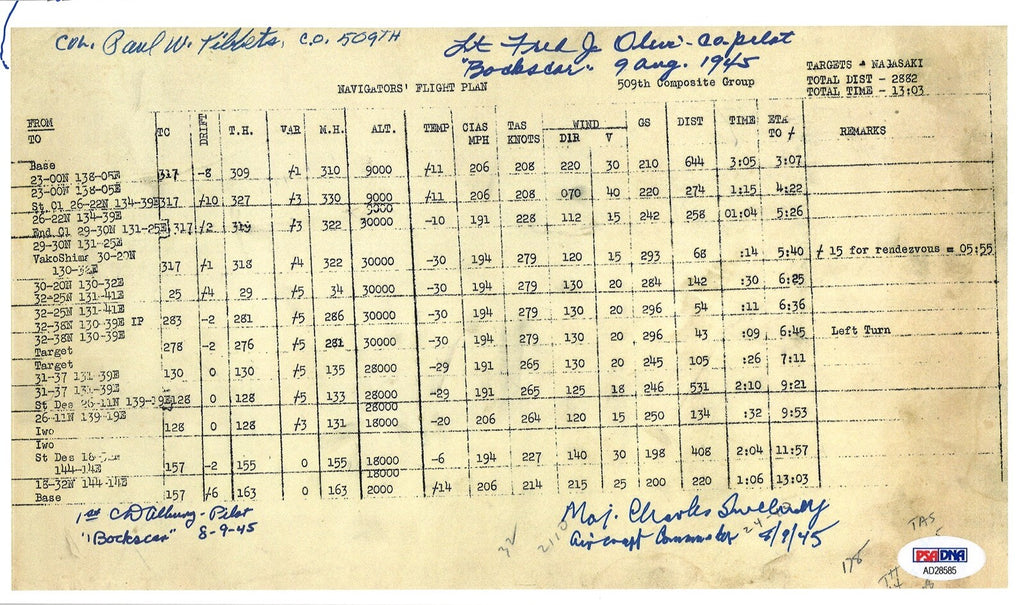 COL. Paul W. Tibbets, C.O. 509TH
Lt Fred J Olivi - Co-pilot
"Bockscar" 9 Aug. 1945
TARGETS - NAGASAKI
TOTAL DIST - 2882
TOTAL TIME - 13:03
NAVIGATORS' FLIGHT PLAN
509th Composite Group
FROM TO TC DRIFT T.H. VAR M.H. ALT. TEMP CIAS MPH TAS KNOTS WIND DIR V GS DIST TIME ETA TO / REMARKS
Base
23-00N 138-05E 317 -8 309 /1 310 9000 /11 206 208 220 30 210 644 3:05 3:07
23-00N 138-05E
St. Cl 26-22N 134-39E 317 /10 327 /3 330 9000 /11 206 208 070 40 220 274 1:15 4:22
26-22N 134-39E 9000
End Cl 29-30N 131-25E 317 /2 319 /3 322 30000 -10 191 228 112 15 242 258 01:04 5:26
29-30N 131-25E
YakoShima 30-20N
130-32E 317 /1 318 /4 322 30000 -30 194 279 120 15 293 68 :14 5:40 / 15 for rendezvous = 05:55
30-20N 130-32E
32-25N 131-41E 25 /4 29 /5 34 30000 -30 194 279 130 20 284 142 :30 6:25
32-25N 131-41E
32-38N 130-39E IP 283 -2 281 /5 286 30000 -30 194 279 130 20 296 54 :11 6:36
32-38N 130-39E
Target 278 -2 276 /5 281 30000 -30 194 279 130 20 296 43 :09 6:45 Left Turn
Target
31-37 131-39E 130 0 130 /5 135 28000 -29 191 265 130 20 245 105 :26 7:11
31-37 131-39E
St Des 26-11N 139-19E 128 0 128 /5 133 28000 -29 191 265 125 18 246 531 2:10 9:21
26-11N 139-19E 28000
Iwo 128 0 128 /3 131 18000 -20 206 264 120 15 250 134 :32 9:53
Iwo
St Des
144-14E 157 -2 155 0 155 18000 -6 194 227 140 30 198 408 2:04 11:57
18-32N 144-14E 18000
Base 157 /6 163 0 163 2000 /14 206 214 215 25 200 220 1:06 13:03
1st CD Albury - Pilot
"Bockscar" 8-9-45
Maj. Charles Sweeney
Aircraft Commander 8/9/45
32
2110
24
178
TAS
PSA DNA
AD28585